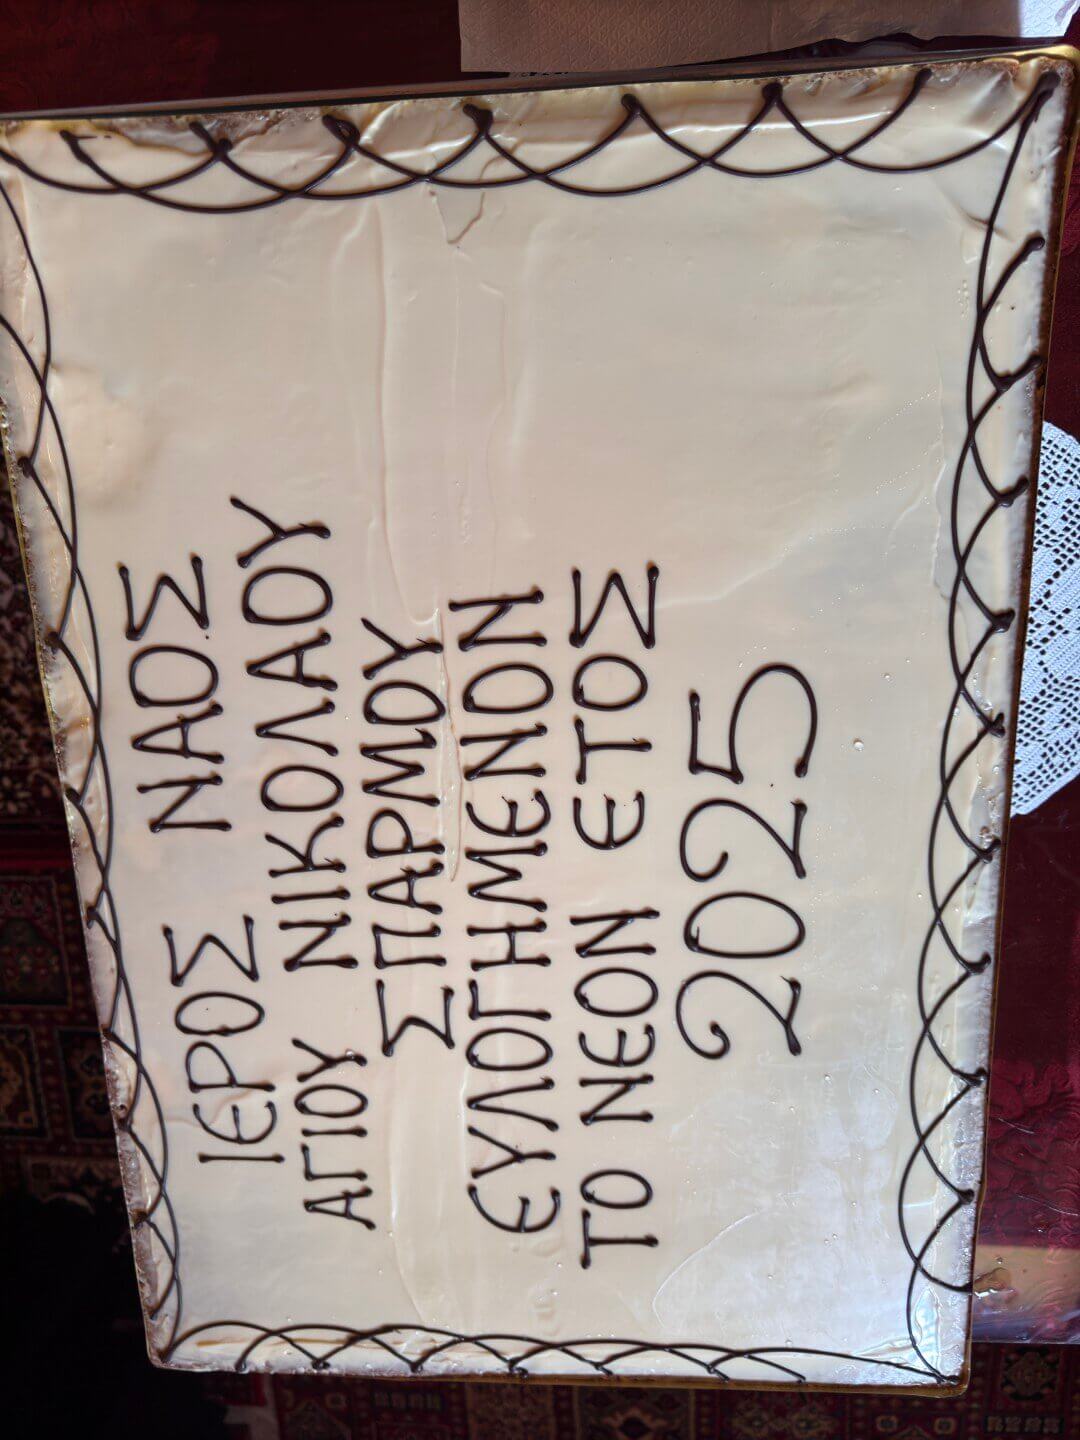 ΙΕΡΟΣ ΝΑΟΣ
ΑΓΙΟΥ ΝΙΚΟΛΑΟΥ
ΣΠΑΡΜΟΥ
ΕΥΛΟΓΗΜΕΝΟΝ
ΤΟ ΝΕΟΝ ΕΤΟΣ
2025